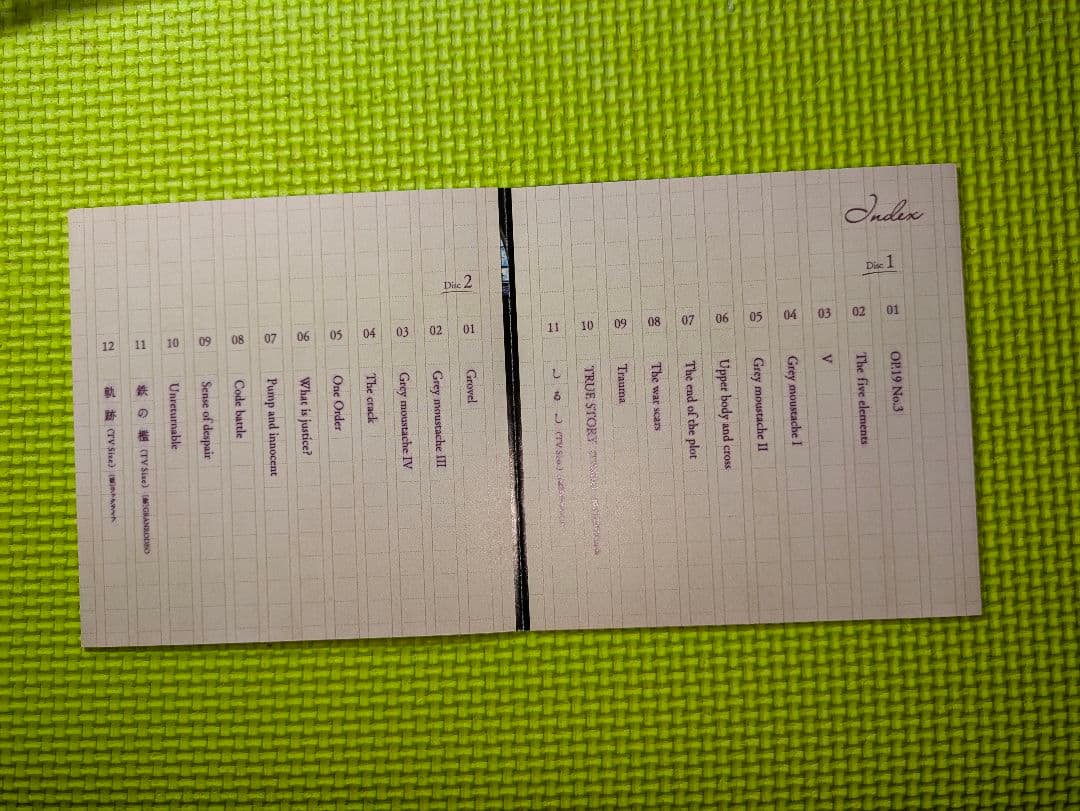 Index
Disc 1
01 OP.19 No.3
02 The five elements
03 V
04 Grey moustache I
05 Grey moustache II
06 Upper body and cross
07 The end of the plot
08 The war scars
09 Trauma
10 TRUE STORY
11 しるし (TV Size)
Disc 2
01 Grovel
02 Grey moustache III
03 Grey moustache IV
04 The crack
05 One Order
06 What is justice?
07 Pump and innocent
08 Code battle
09 Sense of despair
10 Unreturnable
11 鉄の檻 (TV Size) (歌)GRANRODEO
12 軌跡 (TV Size)